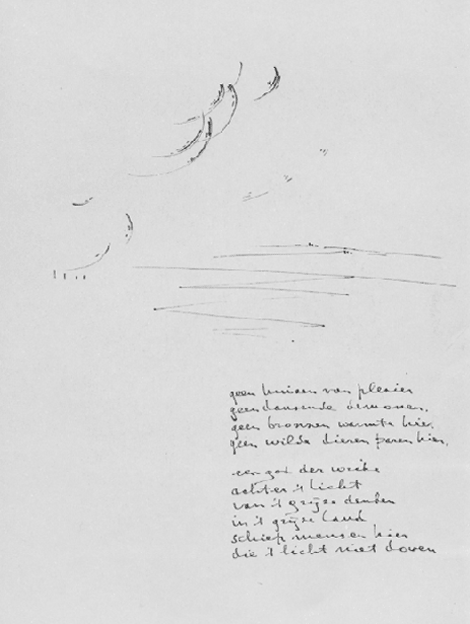 geen huizen van plezier
geen dansende demonen.
geen bronnen warmte hier.
geen wilde dieren paren hier.
een god der
achter 't licht
van 't grijze denken
in 't grijze land
schiep mensen hier
die 't licht niet doven